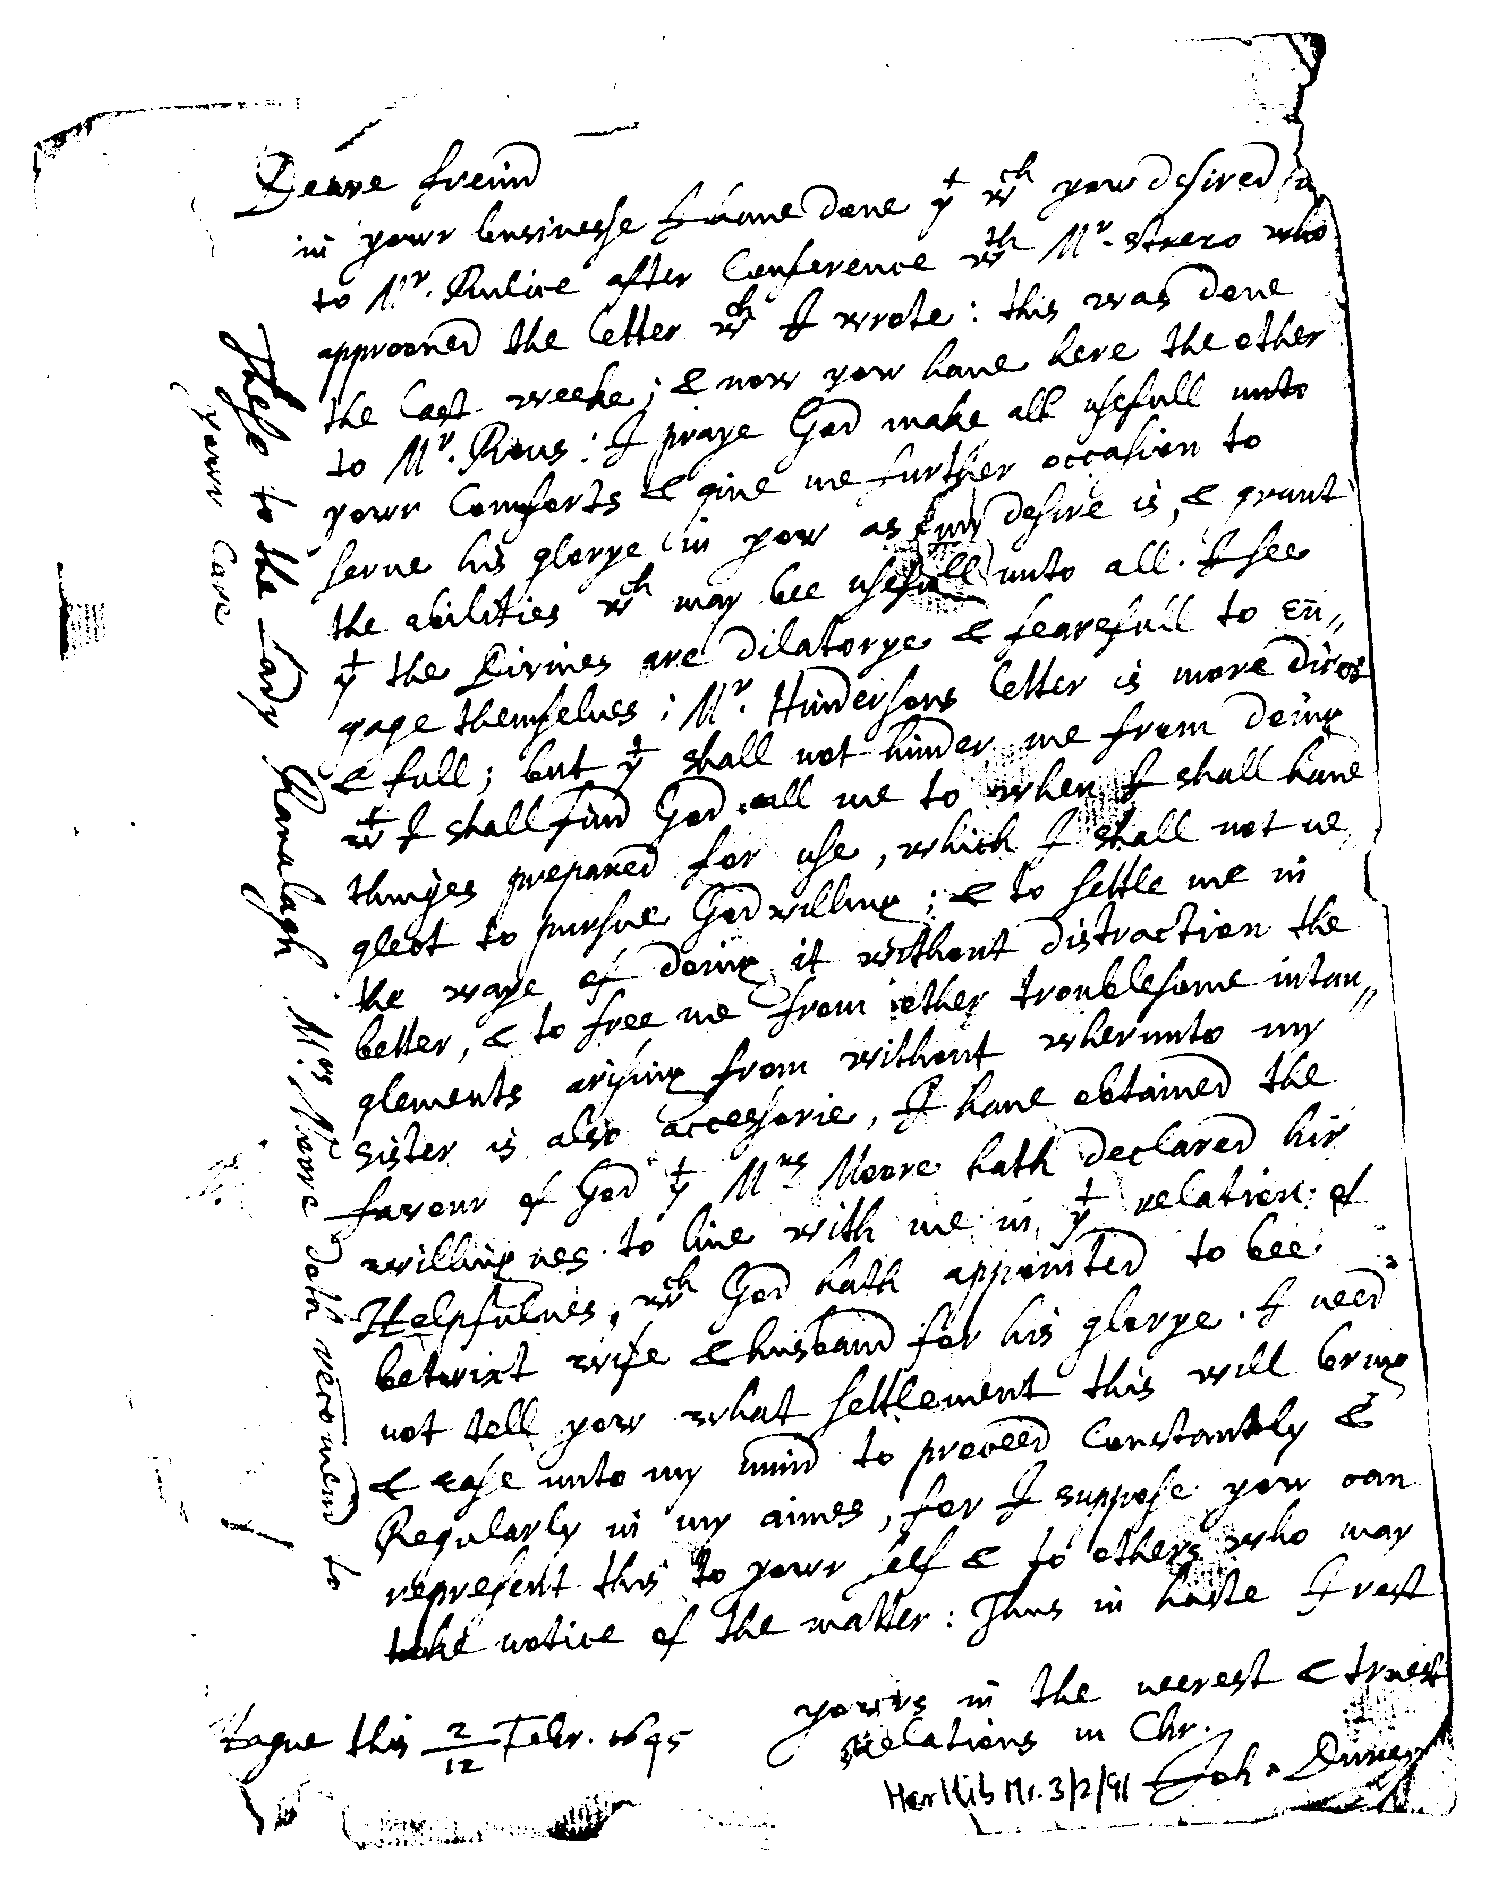 Deare freind
in yowr businesse I haue done yt wch yow desired
to Mr. Rulice after Conference wth Mr. Strero who
approoued the letter wch I wrote: this was done
the last weeke; & now yow haue here the other
to Mr. Rous: I praye God make all usefull unto
yowr Comforts & giue me further occasion to
serue his glorye in yow as my desire is, & grant
the abilities wch may bee usefull unto all. I see
yt the Divines are dilatorye & fearefull to en„
gage themselues; Mr. Hindersons letter is more direct
& full; but yt shall not hinder me from doing
wt I shall find God call me to when I shall haue
thinges prepared for use, which I shall not ne„
glect to pursue God willing; & to settle me in
the waye of doing it without distraction the
better, & to free me from other troublesome intan„
glements arysing from without wherunto my
sister is also accessorie, I haue obtained the
favour of God yt Mrs Moore hath declared hir
willingnes to liue with me in yt relation of
Helpfulnes, wch God hath appointed to bee
betwixt wife & husband for his glorye. I need
not tell yow what settlement this will bring
& ease unto my mind to proceed Constantly &
Regularly in my aimes, for I suppose yow can
represent this to yowr self & to others who may
take notice of the matter: Thus in haste I rest
yowrs in the neerest & truest
Relations in Chr.
Joh. Durey
Hague this 2/12 Febr. 1645
These to the Lady Ranalagh Mrs Moore doth recomend to
yowr Care
Hartlib Ms. 3/2/91